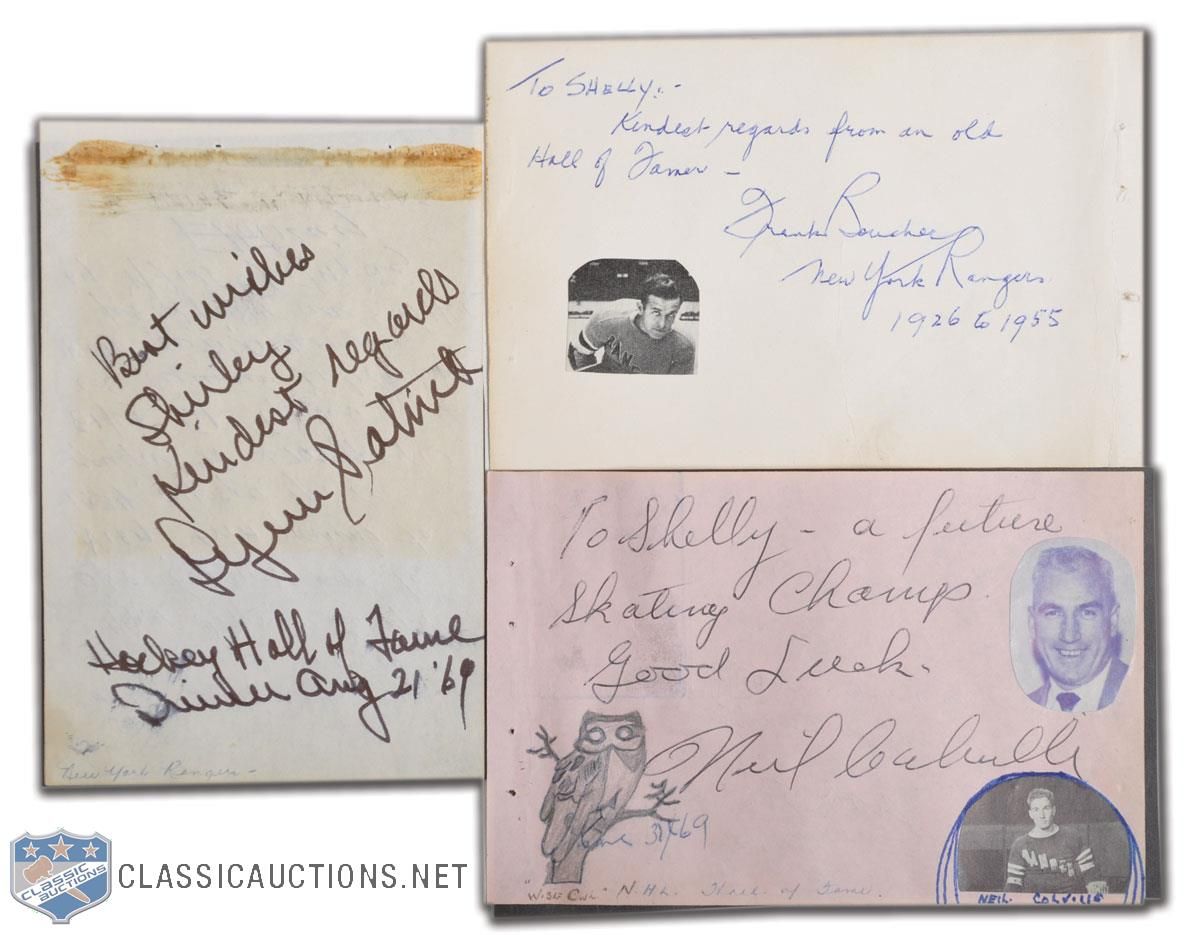 Best wishes
Shirley
Kindest regards
Lynn Patrick
Hockey Hall of Fame
Dinner Aug 21 '69
New York Rangers -
To SHELLY:-
Kindest regards from an old
Hall of Famer -
Frank Boucher
New York Rangers
1926 to 1955
To Shelly - a future
Skating Champ.
Good Luck.
Neil Colville
69
"WISE OWL" N.H.L. of Fame.
NEIL COLVILLE
CLASSIC
AUCTIONS
CLASSICAUCTIONS.NET